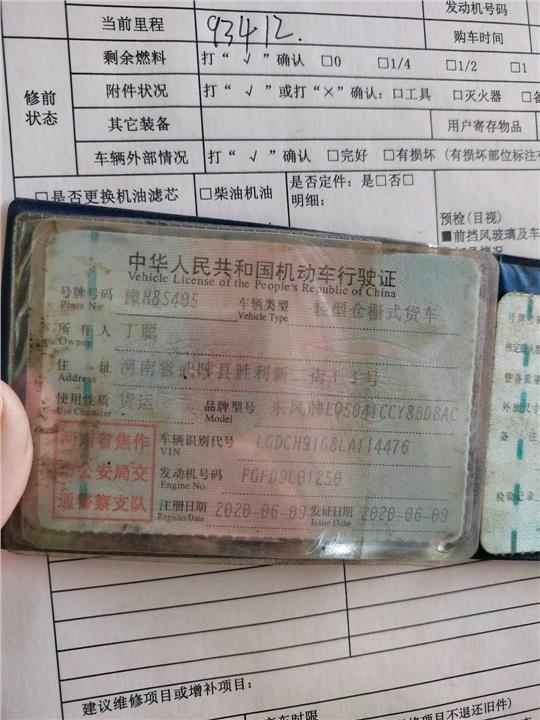 发动机号码
当前里程 93412.
购车时间
剩余燃料 打“√”确认 □0 □1/4 □1/2 □1
修前状态
附件状况 打“√”或打“×”确认：□工具 □灭火器
其它装备 用户寄存物品
车辆外部情况 打“√”确认 □完好 □有损坏（有损坏部位标注
□是否更换机油滤芯 □柴油机油 是否定件：是□否□
明细：
预检（目视）
■前挡风玻璃及车
中华人民共和国机动车行驶证
Vehicle License of the People's Republic of China
号牌号码 豫HBS405 车辆类型 轻型仓栅式货车
Plate No. Vehicle Type
所有人 丁聪
Owner
住址 河南省武陟县胜利新二街
Address
使用性质 货运 品牌型号 东风牌EQ5041CCY8BDBAC
Use Character Model
河南省焦作
市公安局交
通警察支队
车辆识别代号 LGDCH91G8LA114476
VIN
发动机号码 FGFD9L01250
Engine No.
注册日期 2020-06-09 发证日期 2020-06-09
Register Date Issue Date
号牌号
核定载人数
整备质量
外廓尺寸
备注
检验记录
建议维修项目或增补项目：